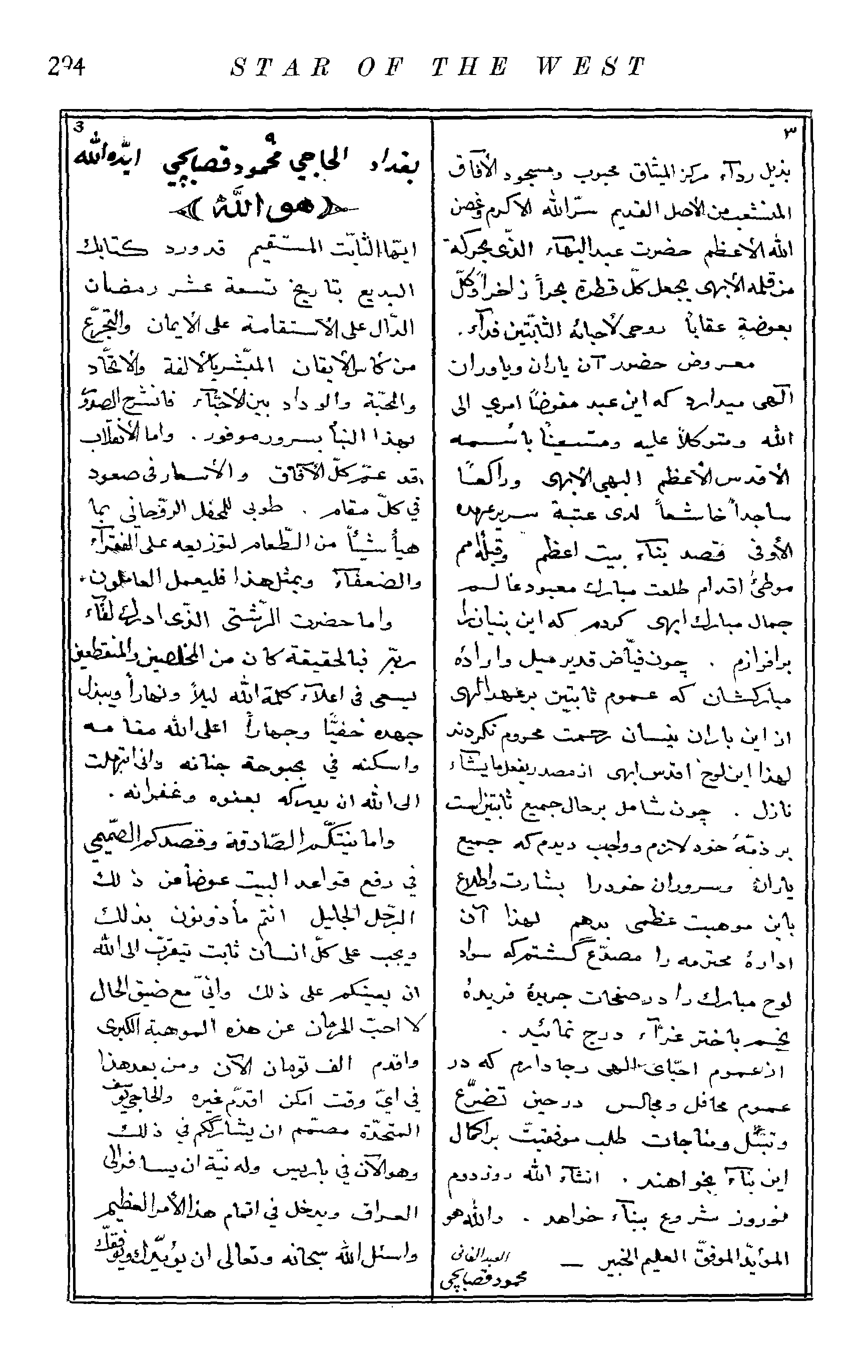 294 STAR OF THE WEST
٣
بذيل ردآء مركز الميثاق محبوب ومسجود الأفاق
المنشعب من الأصل القديم سرّ الله الاكرم وغصن
الله الأعظم حضرت عبد البهآء الذى بحركة
من قلمه الأبهى يجعل كلّ قطرة بحراً زاخراً وكلّ
بعوضةٍ عقاباً روحى لأحبائه الثابتين فدآء .
معروض حضور آن ياران وياوران
آلهى ميدارد كه اين عبد مفوضاً امرى الى
الله ومتوكلاً عليه ومستعيناً باسمه
الأقدس الأعظم البهى الأبهى وراكعاً
ساجداً خاشعاً لدى عتبة سرير عهده
الأوفى قصد بنآء بيت اعظم وقبلهٔ امم
موطئ اقدام طلعت مبارك معبود عالم
جمال مبارك ابهى كردم كه اين بنيان را
برافرازم . چون فيّاض قدير ميل وارادهٔ
مباركشان كه عموم ثابتين بر عهد الهى
از اين باران نيسان رحمت محروم نكردند
لهذا اين لوح اقدس ابهى از مصدر يفعل مايشآء
نازل . چون شامل بر حال جميع ثابتين است
بر ذمّهٔ خود لازم وواجب ديدم كه جميع
ياران وسروران خودرا بشارت واطلاع
باين موهبت عظمى بدهم لهذا آن
ادارهٔ محترمه را مصدّع گشتم كه سواد
لوح مبارك را در صفحات جريدهٔ فريدهٔ
نجم باختر غرّآء درج نمائيد .
از عموم احبّاى الهى رجا دارم كه در
عموم محافل ومجالس در حين تضرّع
وتبتّل ومناجات طلب موفقيّت بر اكمال
اين بنآء بخواهند . انشآء الله روز دوم
نوروز شروع ببنآء خواهد . والله هو
المؤيّد الموفّق العليم الخبير —
العبد الفانى
محمود قصابچى
3
٩
بغداد الحاجي محمود قصابچي ايّده الله
﴿هو الله﴾
ايّها الثّابت المستقيم قد ورد كتابك
البديع بتاريخ تسعة عشر رمضان
الدّال على الأستقامة على الأيمان والتجرّع
من كأس الأيقان المبّشر بالألفة والاتّحاد
والمحبّة والوداد بين الأحبّآء فانشرح الصدور
بهذا النبأ بسرور موفور . واما الأنقلاب
قد عمّ كلّ الآفاق والأسعار فى صعود
في كلّ مقام . طوبى للمحفل الروّحاني بما
هيأ شيئاً من الطّعام لتوزيعه على الفقرآء
والضعفآء وبمثل هذا فليعمل العاملون .
واما حضرت الرّشتى الذّى ادرك لقآء
ربّه فبالحقيقة كان من المخلصين والمنقطعين
يسعى فى اعلآء كلمة الله ليلاً ونهاراً ويبذل
جهده خفيّاً وجهاراً اعلى الله مقامه
واسكنه في بحبوحة جنانه وانى ابتهلت
الى الله ان يدركه بعفوه وغفرانه .
واما نيّتكم الصّادقة وقصدكم الصّميمي
في رفع قواعد البيت عوضاً عن ذلك
الرّجل الجليل انتم مأذونون بذلك
ويجب على كلّ انسان ثابت تيقرّب الى الله
ان يعينكم على ذلك وانّي مع ضيق الحال
لا احبّ الحرمان عن هذه الموهبة الكبرى
واقدم الف تومان الآن ومن بعد هذا
في ايّ وقت امكن اقدّم غيره والحاجي
المتحدّه مصمّم ان يشارككم في ذلك
وهو الآن في باريس وله نيّة ان يسافر الى
العراق ويدخل في اتمام هذا الأمر العظيم
واسئل الله سبحانه وتعالى ان يؤيّدك ويوفقك